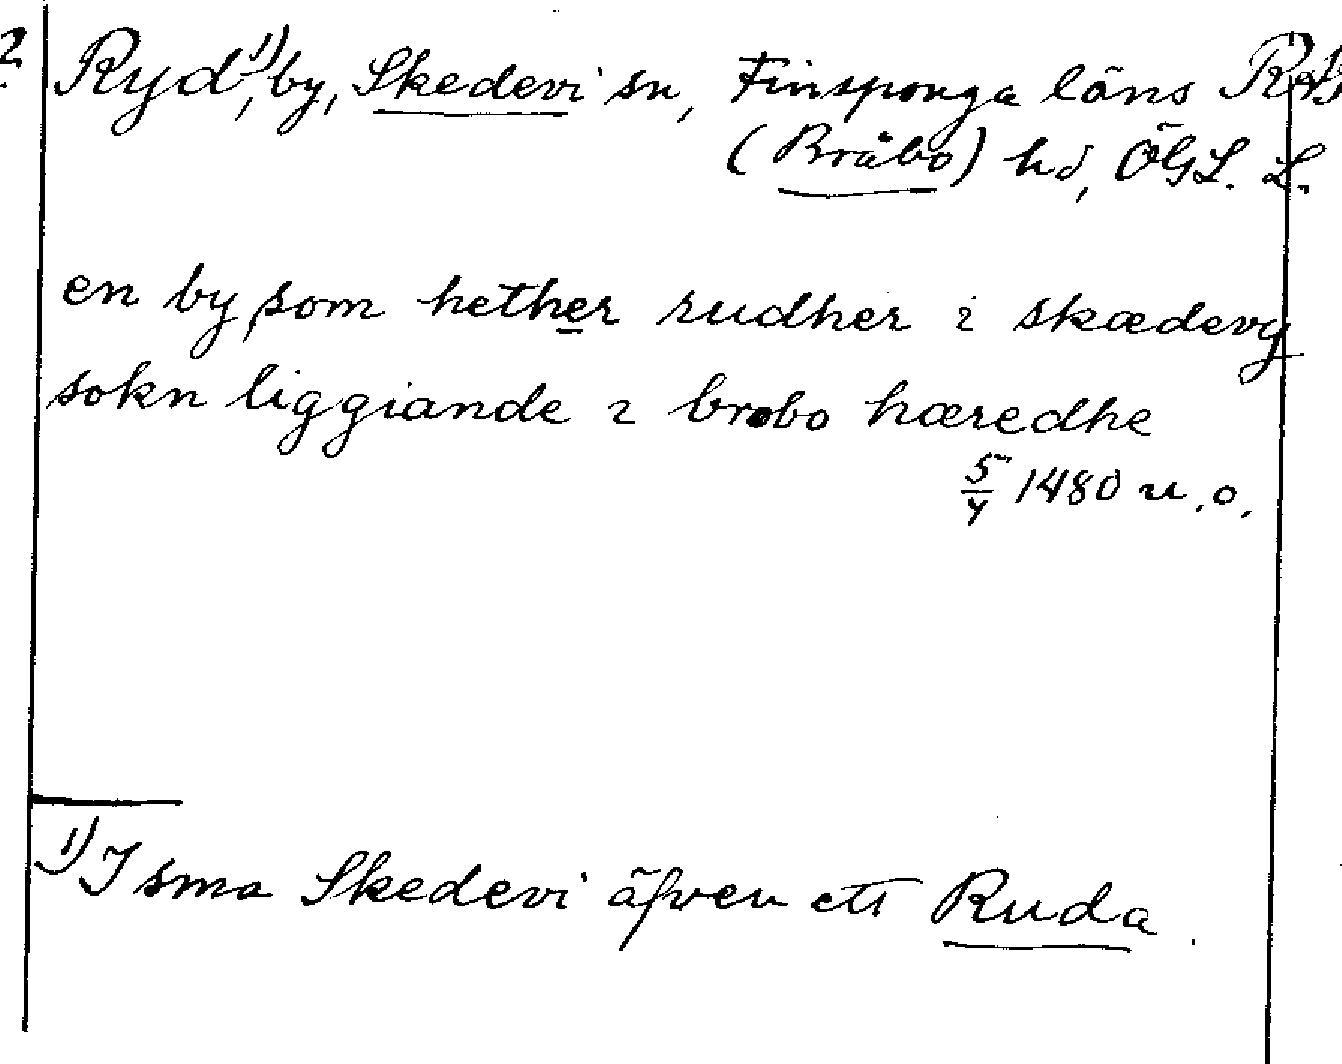 Ryd,¹⁾ by, Skedevi sn, Finsponga läns
(Bråbo) hd, ÖGL. L.
en by som hether rudher i skædevy
sokn liggiande i brobo hæredhe
5/4 1480 u.o.
¹⁾ I sma Skedevi äfven ett Ruda.